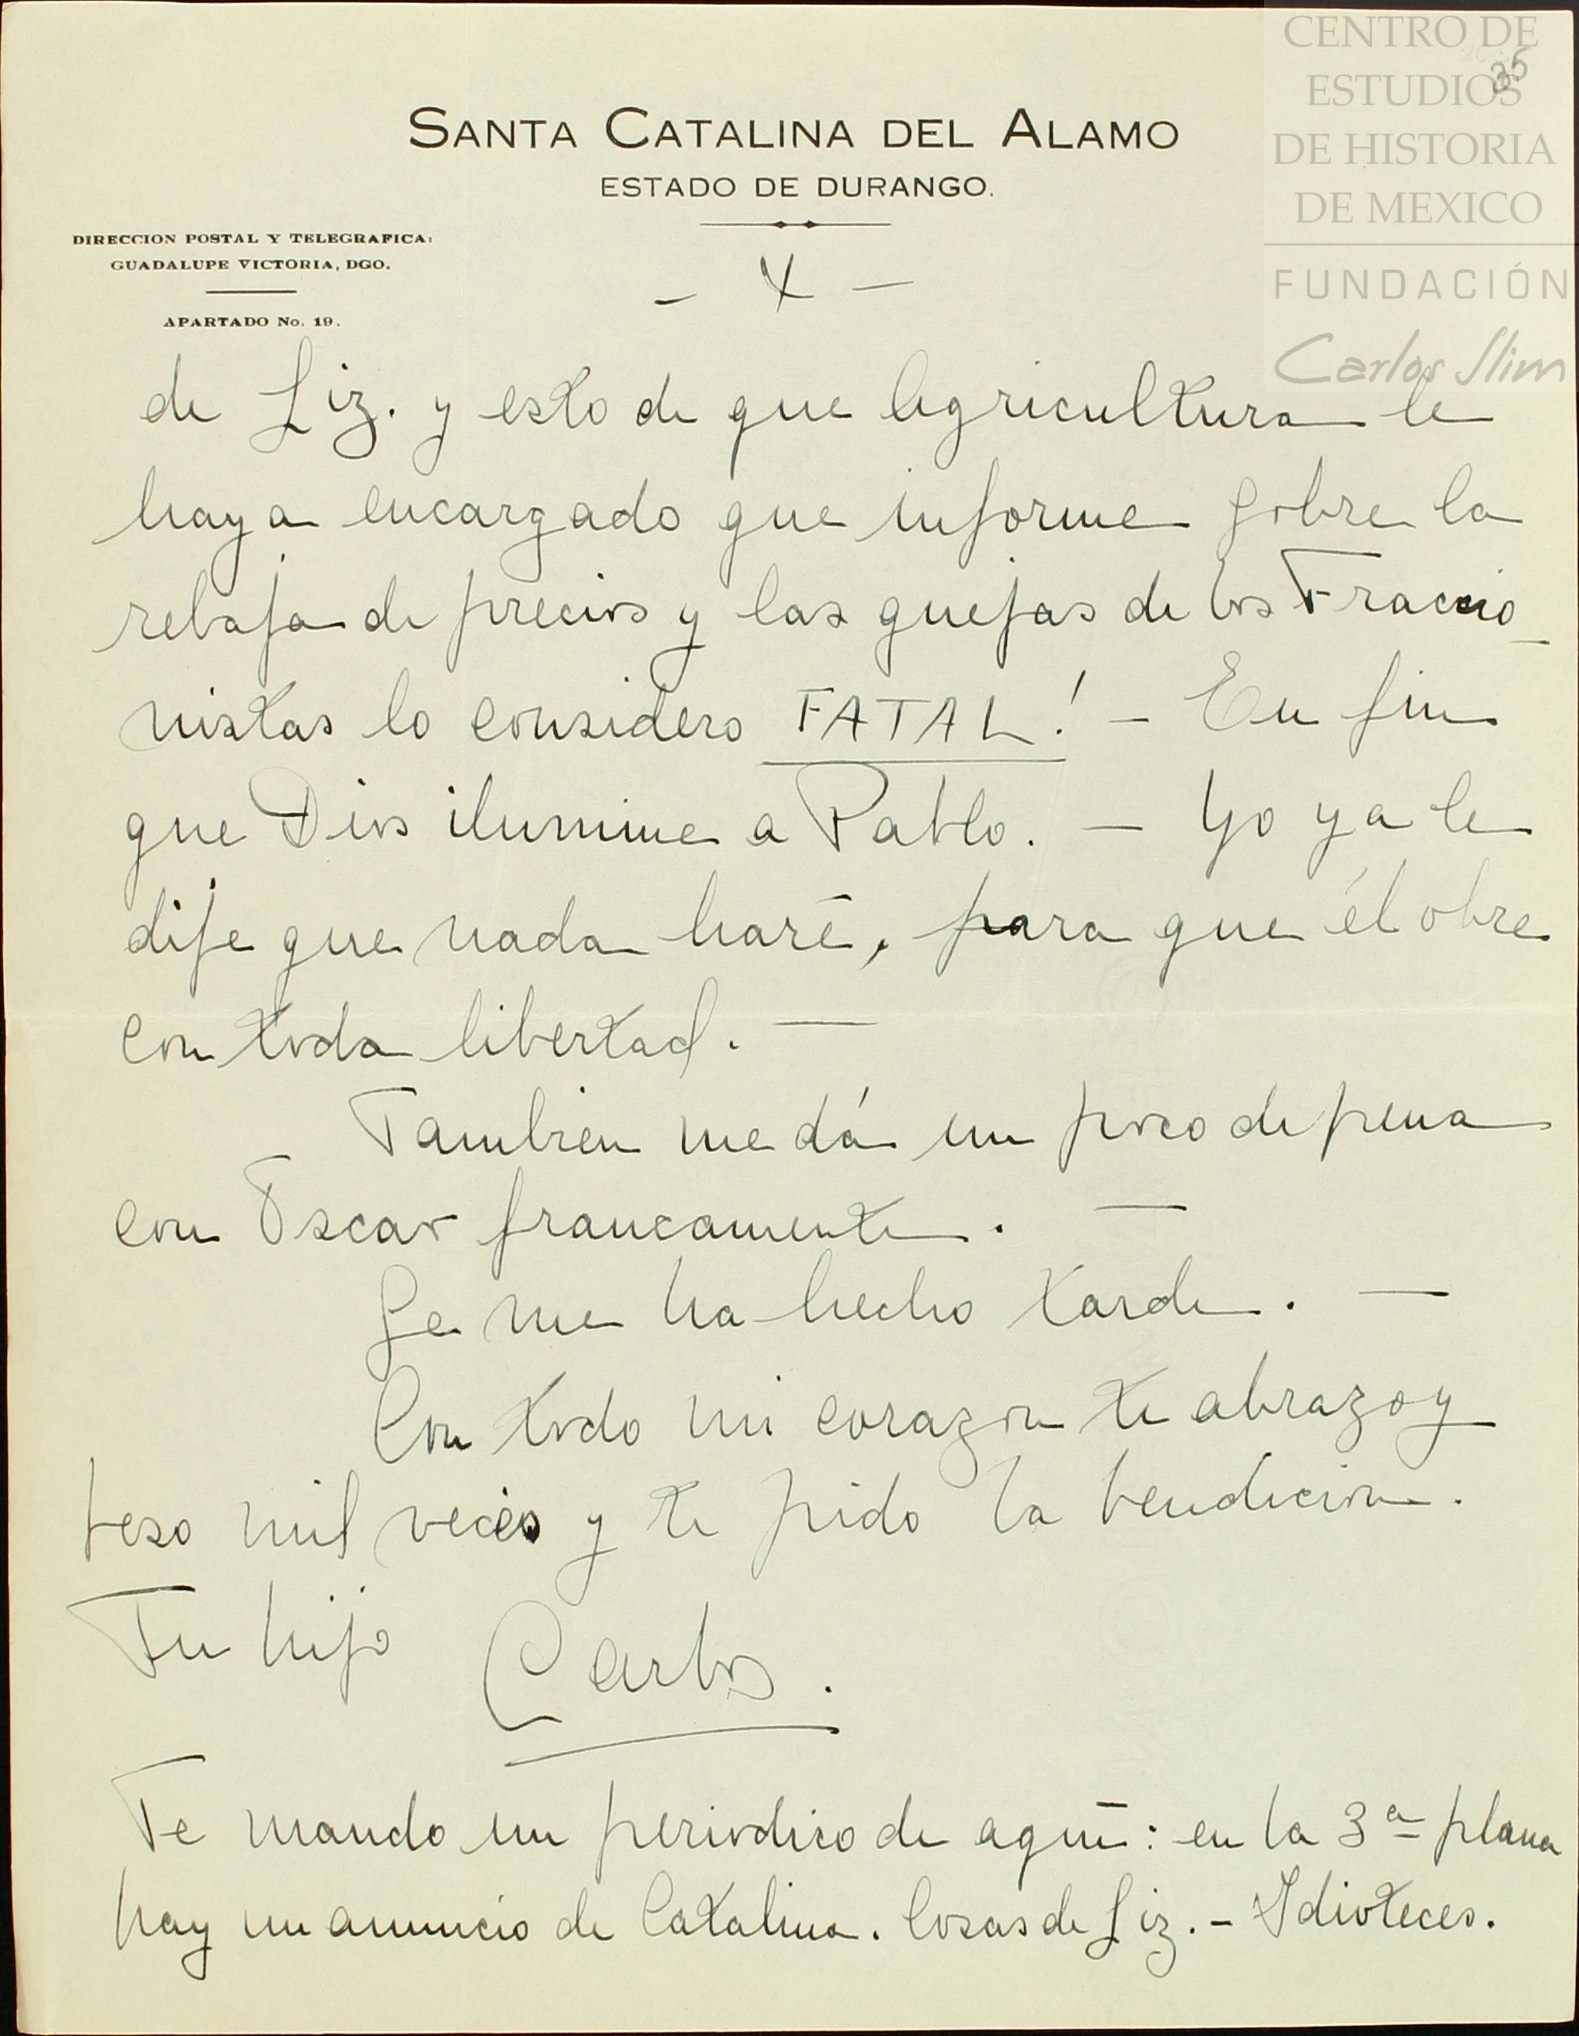 CENTRO DE
ESTUDIOS
DE HISTORIA
DE MEXICO
FUNDACIÓN
Carlos Slim
35
SANTA CATALINA DEL ALAMO
ESTADO DE DURANGO.
DIRECCION POSTAL Y TELEGRAFICA:
GUADALUPE VICTORIA, DGO.
APARTADO No. 19.
- X -
de Liz. y esto de que Agricultura le
haya encargado que informe sobre la
rebaja de precios y las quejas de los Fraccio_
nistas lo considero FATAL! - En fin
que Dios ilumine a Pablo. - Yo ya le
dije que nada haré, para que él obre
con toda libertad. -
Tambien me dá un poco de pena
con Oscar francamente. -
Se me ha hecho tarde. -
Con todo mi corazon te abrazo y
beso mil veces y te pido la bendicion.
Tu hijo Carlos.
Te mando un periodico de aquí: en la 3ª plana
hay un anuncio de Catalina. Cosas de Liz. - Idioteces.